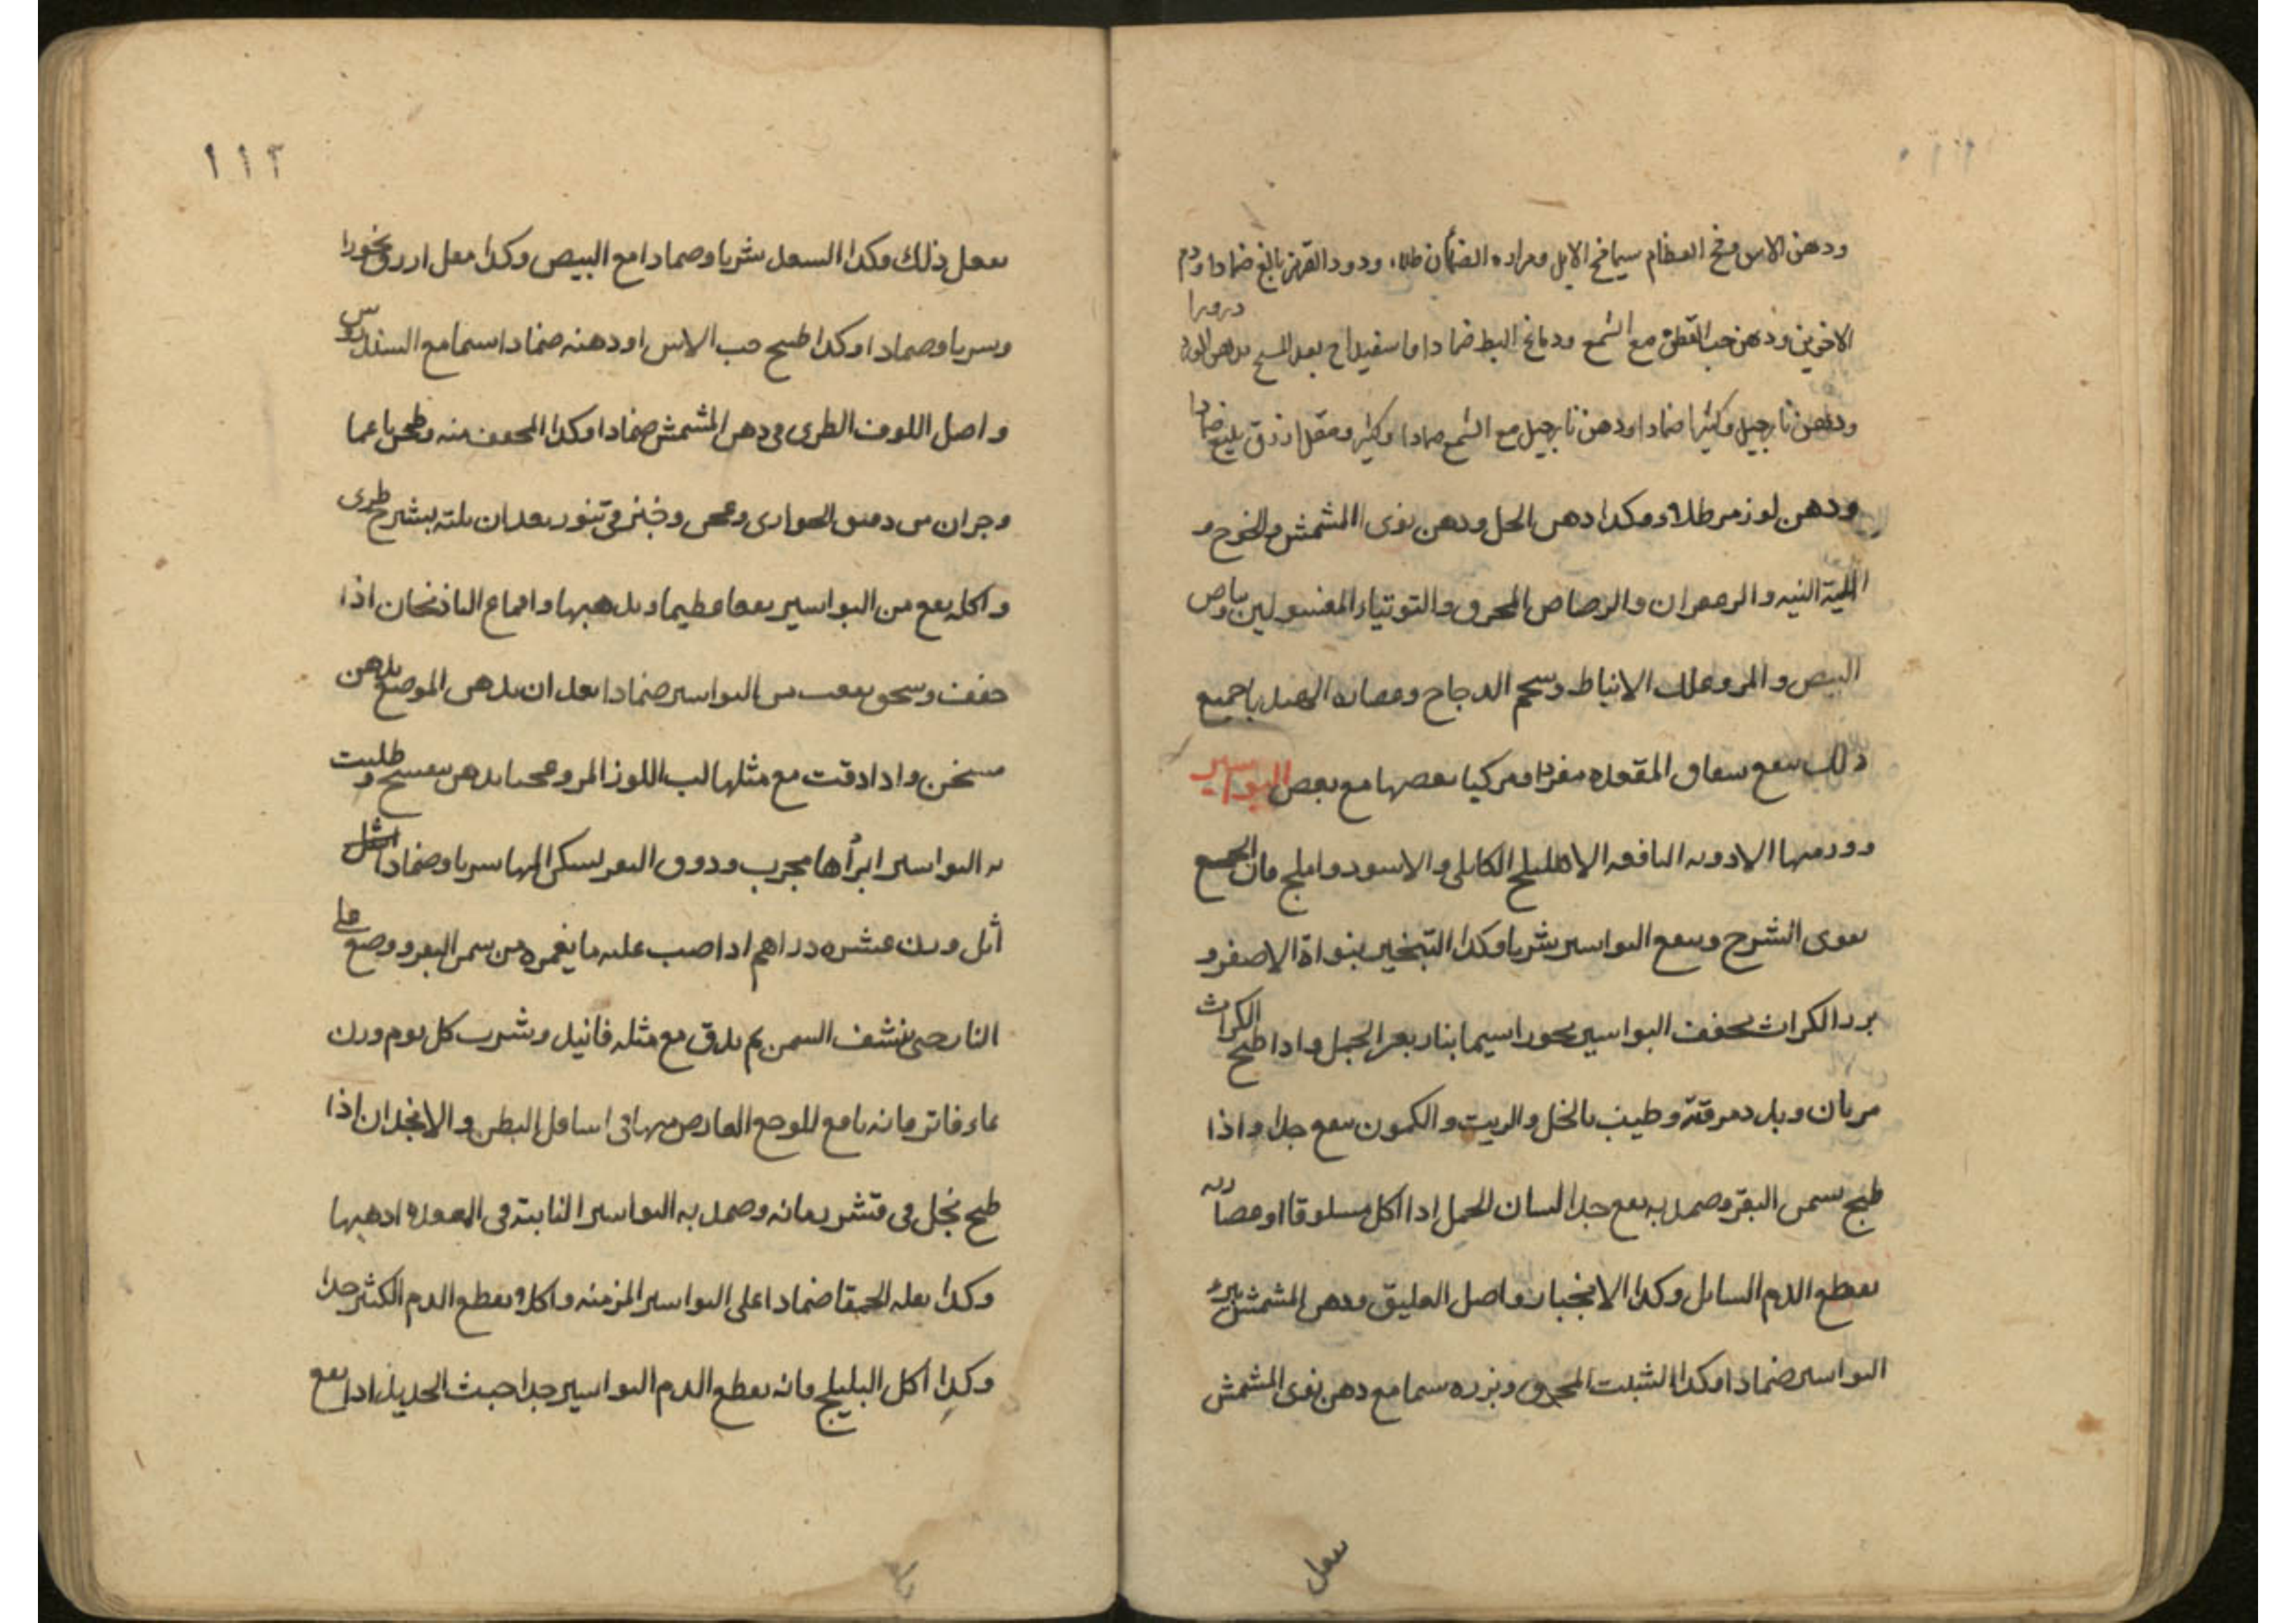 ودهن الاس ومخ العظام سيما مخ الايل ومراره الضأن طلاء ودود القرمز بالغ ضمادا ودم
الاخوين ذرورا ودهن حب القطن مع الشمع ودماغ البط ضمادا واسفيداج بعد المسح بدهن الورد
ودهن نارجيل وكثيرا ضمادا ودهن نارجيل مع الشمع صمادا وكثيرا ومقل ازرق بليغ ضمادا
ودهن لوز مر طلاء وكدا دهن الحل ودهن نوى المشمش والخوخ و
الالية النيه والرعفران والرصاص المحرق والتوتياء المغسولين بياص
البيص والمر وعلك الانباط وشحم الدجاج وعصاره الهندبا جميع
ذلك ينفع شقاق المقعده مفردا ومركبا بعصها مع بعص البواسير
وورمها الادويه النافعه الاهليلج الكابلي والاسود واملج فان الجميع
يقوى الشرج وينفع البواسير شربا وكدا التبخير بنواة الاصفر و
بزر الكراث يجفف البواسير بخورا سيما بنار بعر الجمل وادا طبخ الكراث
مرتان وبدل مرقته وطيب بالخل والزيت والكمون ينفع جدا واذا
طبخ بسمن البقر وصمد به نفع جدا لسان الحمل ادا اكل مسلوقا او عصارته
يقطع الدم السايل وكدا الانجبار واصل العليق ودهن المشمش يبرئ
البواسير ضمادا وكدا الشبت المحرق وبزره سيما مع دهن نوى المشمش
يفعل
١١٢
يفعل ذلك وكدا السعد شربا وصمادا مع البيص وكدا مقل ازرق بخورا
وشربا وصمادا وكدا طبيخ حب الاس او دهنه ضمادا سيما مع السندروس
واصل اللوف الطرى فى دهن المشمش ضمادا وكدا المجفف منه وطحن ناعما
وجزان من دقيق الحوارى وعجن وخبز فى تنور بعد ان يلته بشيرج طرى
واكله ينفع من البواسير نفعا عظيما ويدهبها واقماع الباذنجان اذا
جفف وسحق ينفع من البواسير ضمادا بعد ان يدهن الموضع بدهن
مسخن وادا دقت مع مثلها لب اللوز المر وعجنا بدهن بنفسج وطليت
به البواسير ابرأها مجرب وذوق البقر يسكن المها شربا وضمادا
اثل وزن عشره دراهم ادا صب عليه ما يغمره من سمن البقر ووضع على
النار حتى ينشف السمن ثم يدق مع مثله فانيد ويشرب كل يوم وزن
بماء فاتر فانه نافع للوجع العارض منها فى اسافل البطن والانجدان اذا
طبخ بخل فى قشر رمانه وصمد به البواسير النابته فى المقعده ادهبها
وكدا بقله الحمقا ضمادا على البواسير المزمنه واكلا ويقطع الدم الكثير جدا
وكدا اكل البليلج فانه يقطع الدم البواسير جدا خبث الحديد ادا نقع